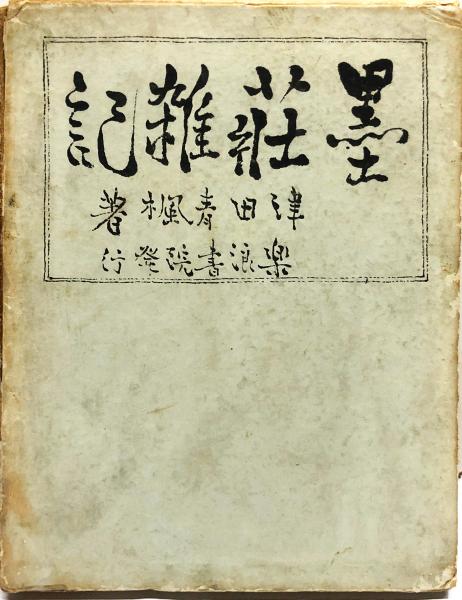 墨荘雑記
津田青楓著
楽浪書院発行